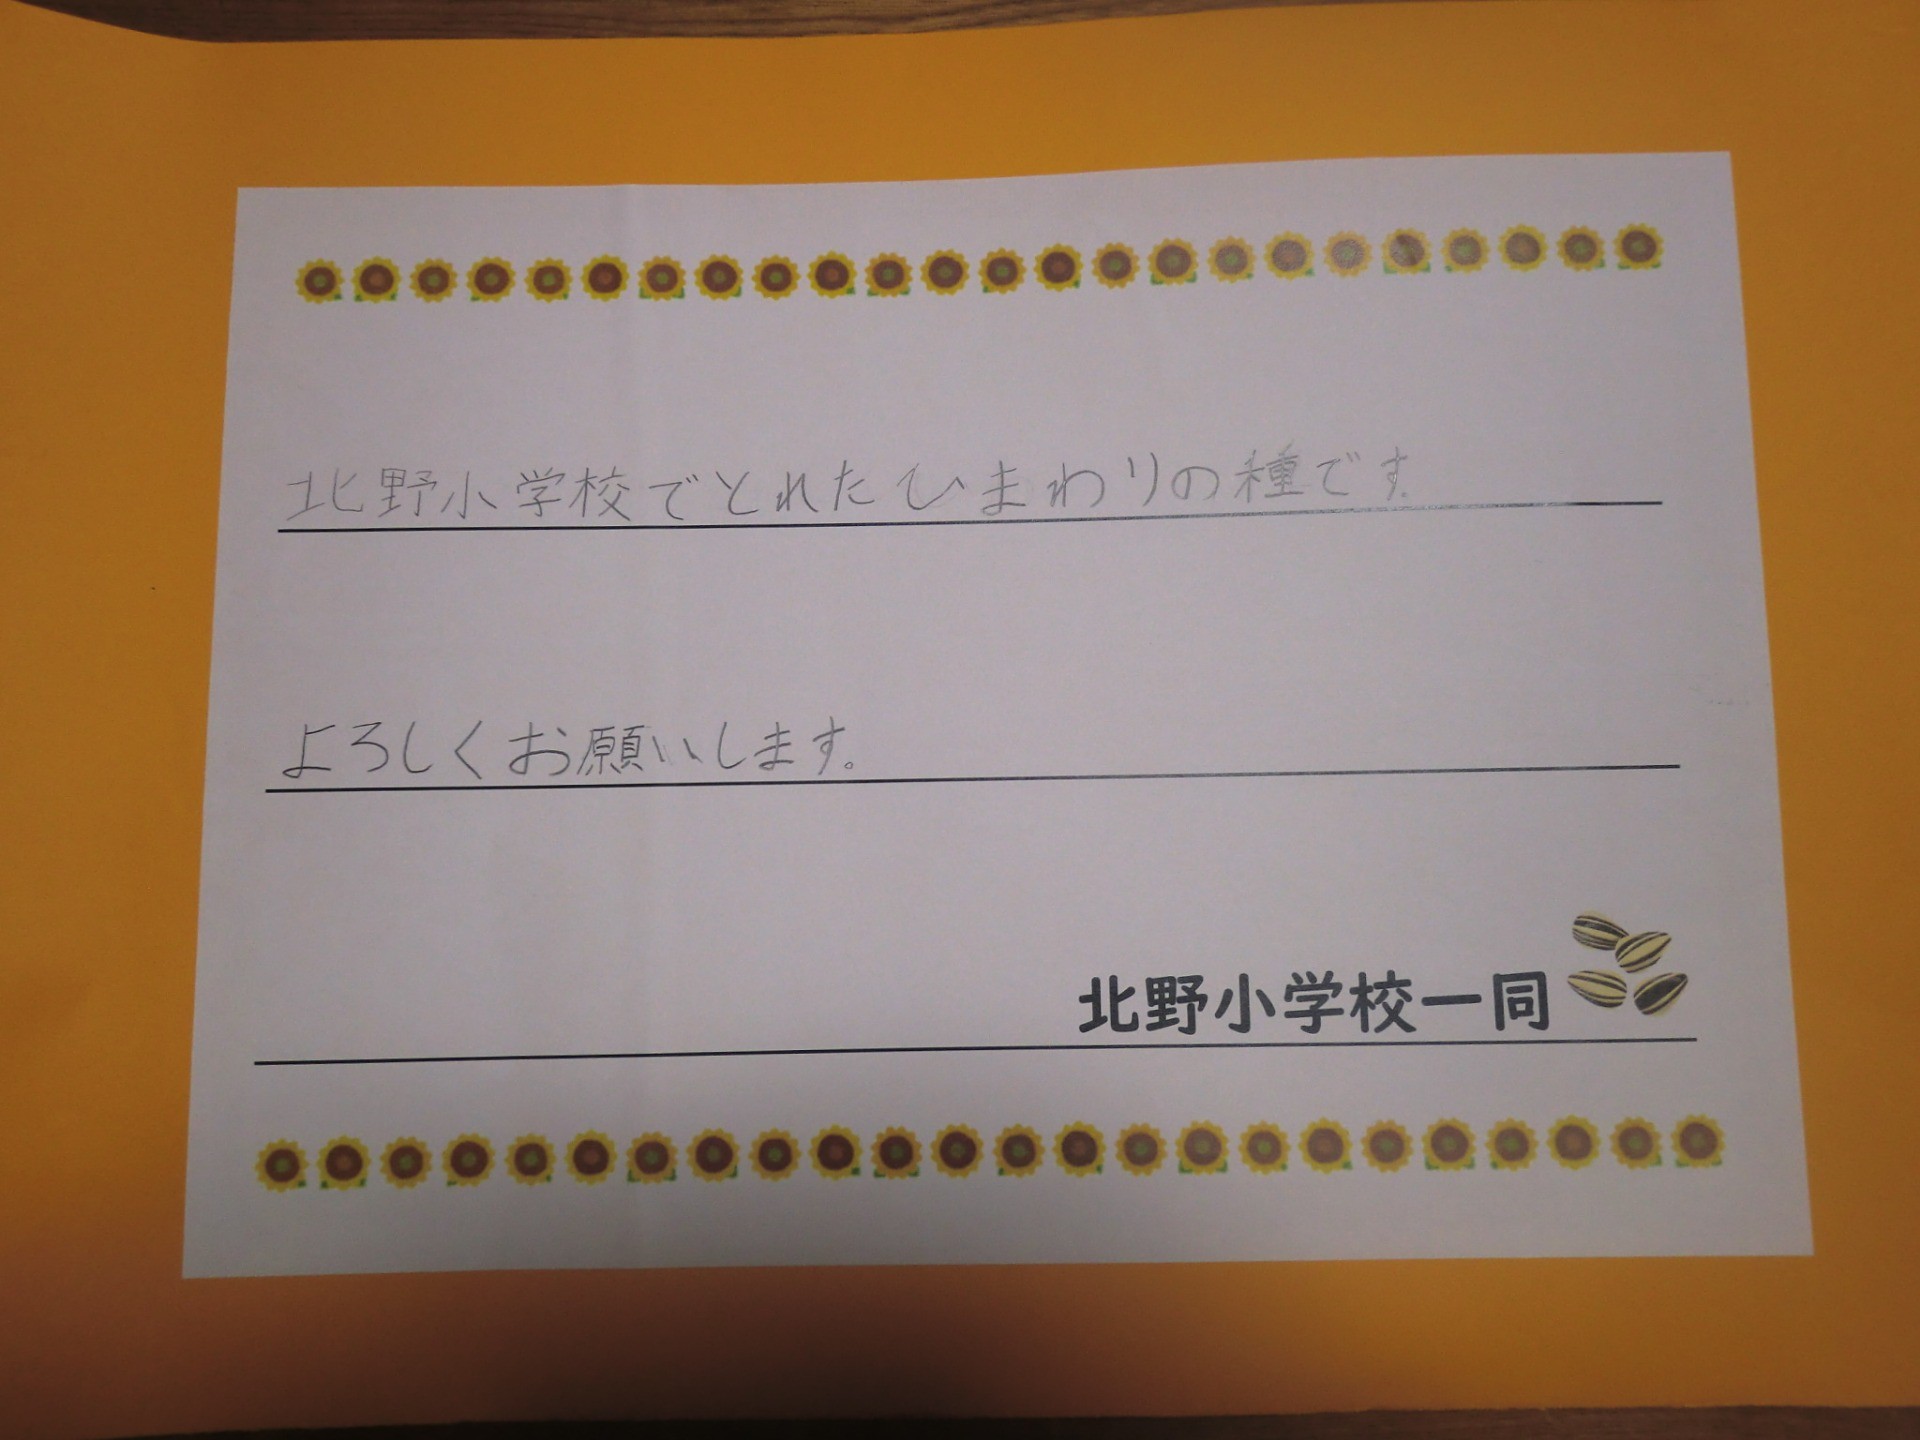 北野小学校でとれたひまわりの種です。
よろしくお願いします。
北野小学校一同